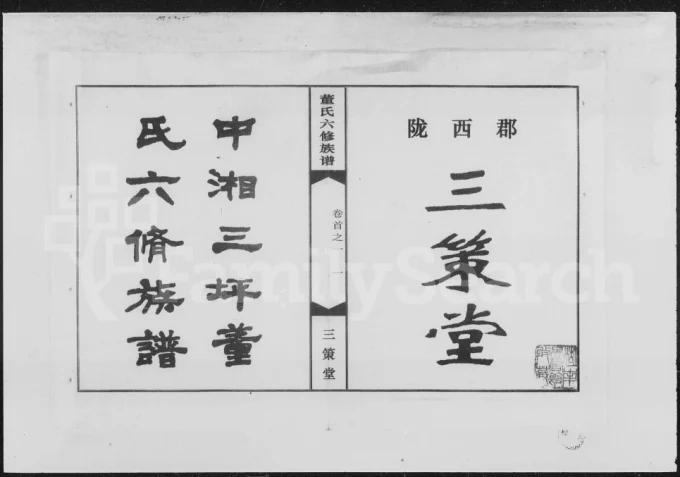 陇西郡
三策堂
董氏六修族谱
卷首之一
一
三策堂
中湘三坪董
氏六脩族譜
FamilySearch